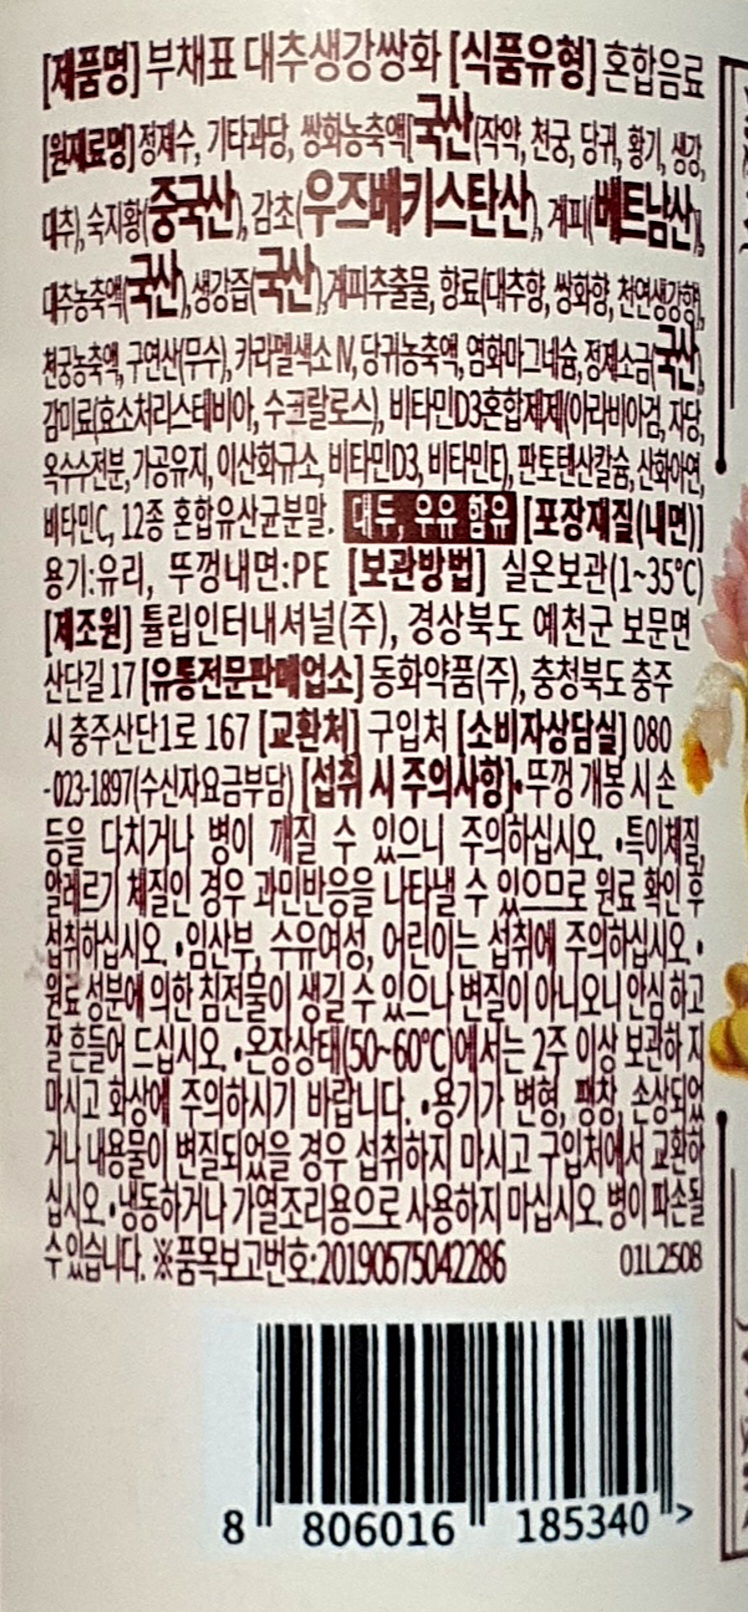 [제품명] 부채표 대추생강쌍화 [식품유형] 혼합음료
[원재료명] 정제수, 기타과당, 쌍화농축액[국산(작약, 천궁, 당귀, 황기, 생강,
대추), 숙지황(중국산), 감초(우즈베키스탄산), 계피(베트남산)],
대추농축액(국산), 생강즙(국산), 계피추출물, 향료(대추향, 쌍화향, 천연생강향),
천궁농축액, 구연산(무수), 카라멜색소 IV, 당귀농축액, 염화마그네슘, 정제소금(국산),
감미료(효소처리스테비아, 수크랄로스), 비타민D3혼합제제(아라비아검, 자당,
옥수수전분, 가공유지, 이산화규소, 비타민D3, 비타민E), 판토텐산칼슘, 산화아연,
비타민C, 12종 혼합유산균분말. 대두, 우유 함유 [포장재질(내면)]
용기:유리, 뚜껑내면:PE [보관방법] 실온보관(1~35℃)
[제조원] 튤립인터내셔널(주), 경상북도 예천군 보문면
산단길 17 [유통전문판매업소] 동화약품(주), 충청북도 충주
시 충주산단1로 167 [교환처] 구입처 [소비자상담실] 080
-023-1897(수신자요금부담) [섭취 시 주의사항]•뚜껑 개봉 시 손
등을 다치거나 병이 깨질 수 있으니 주의하십시오. •특이체질,
알레르기 체질인 경우 과민반응을 나타낼 수 있으므로 원료 확인 후
섭취하십시오. •임산부, 수유여성, 어린이는 섭취에 주의하십시오. •
원료 성분에 의한 침전물이 생길 수 있으나 변질이 아니오니 안심 하고
잘 흔들어 드십시오. •온장상태(50~60℃)에서는 2주 이상 보관하 지
마시고 화상에 주의하시기 바랍니다. •용기가 변형, 팽창, 손상되었
거나 내용물이 변질되었을 경우 섭취하지 마시고 구입처에서 교환하
십시오. •냉동하거나 가열조리용으로 사용하지 마십시오. 병이 파손될
수 있습니다. ※품목보고번호:20190575042286 01L2508
8 806016 185340 >